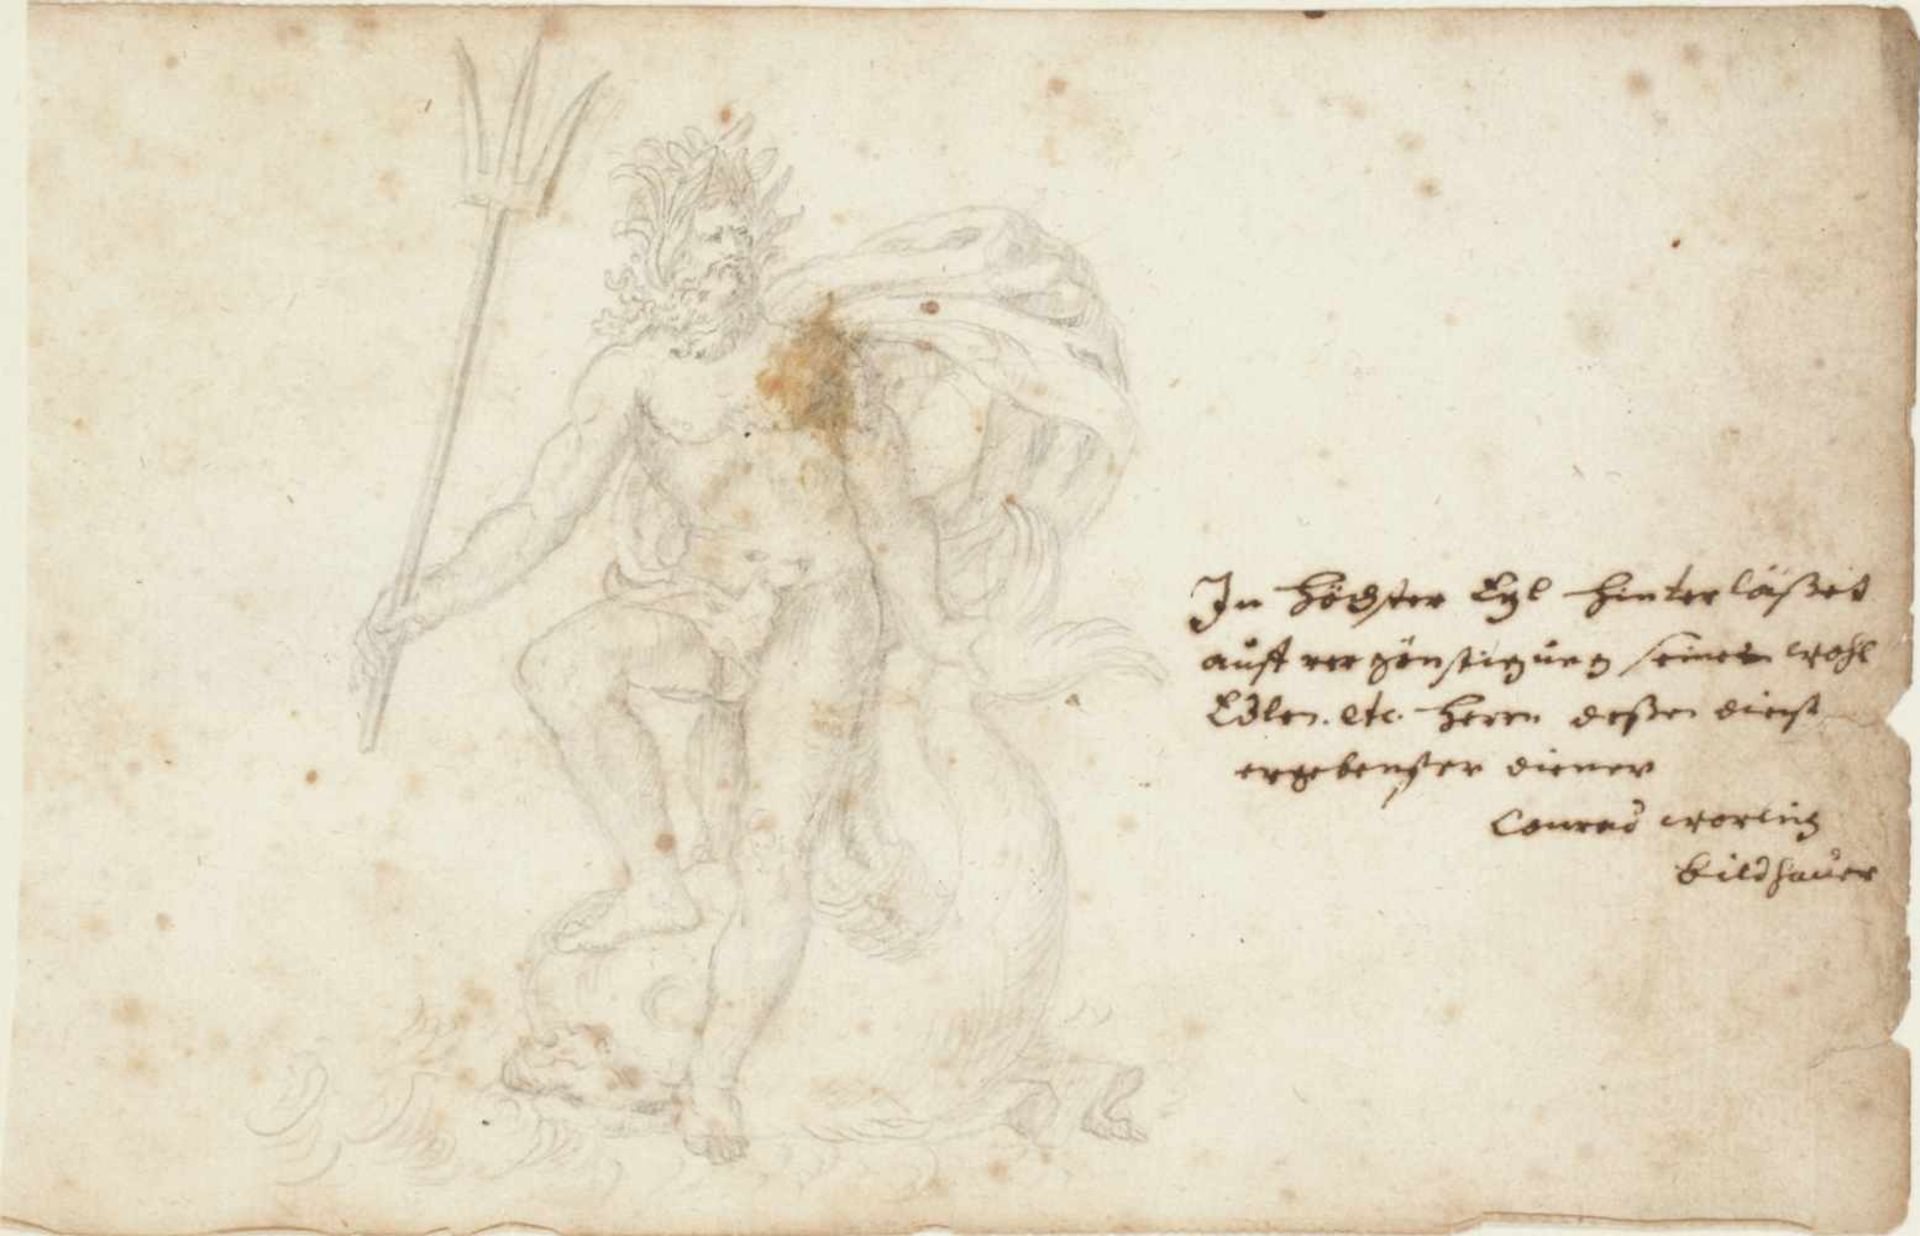 In höchster Eyl hinterläßet
auff vergönstigung seines wohl
Edlen. etc. Herrn deßen dienst
ergebenster diener
Conrad
bildhauer